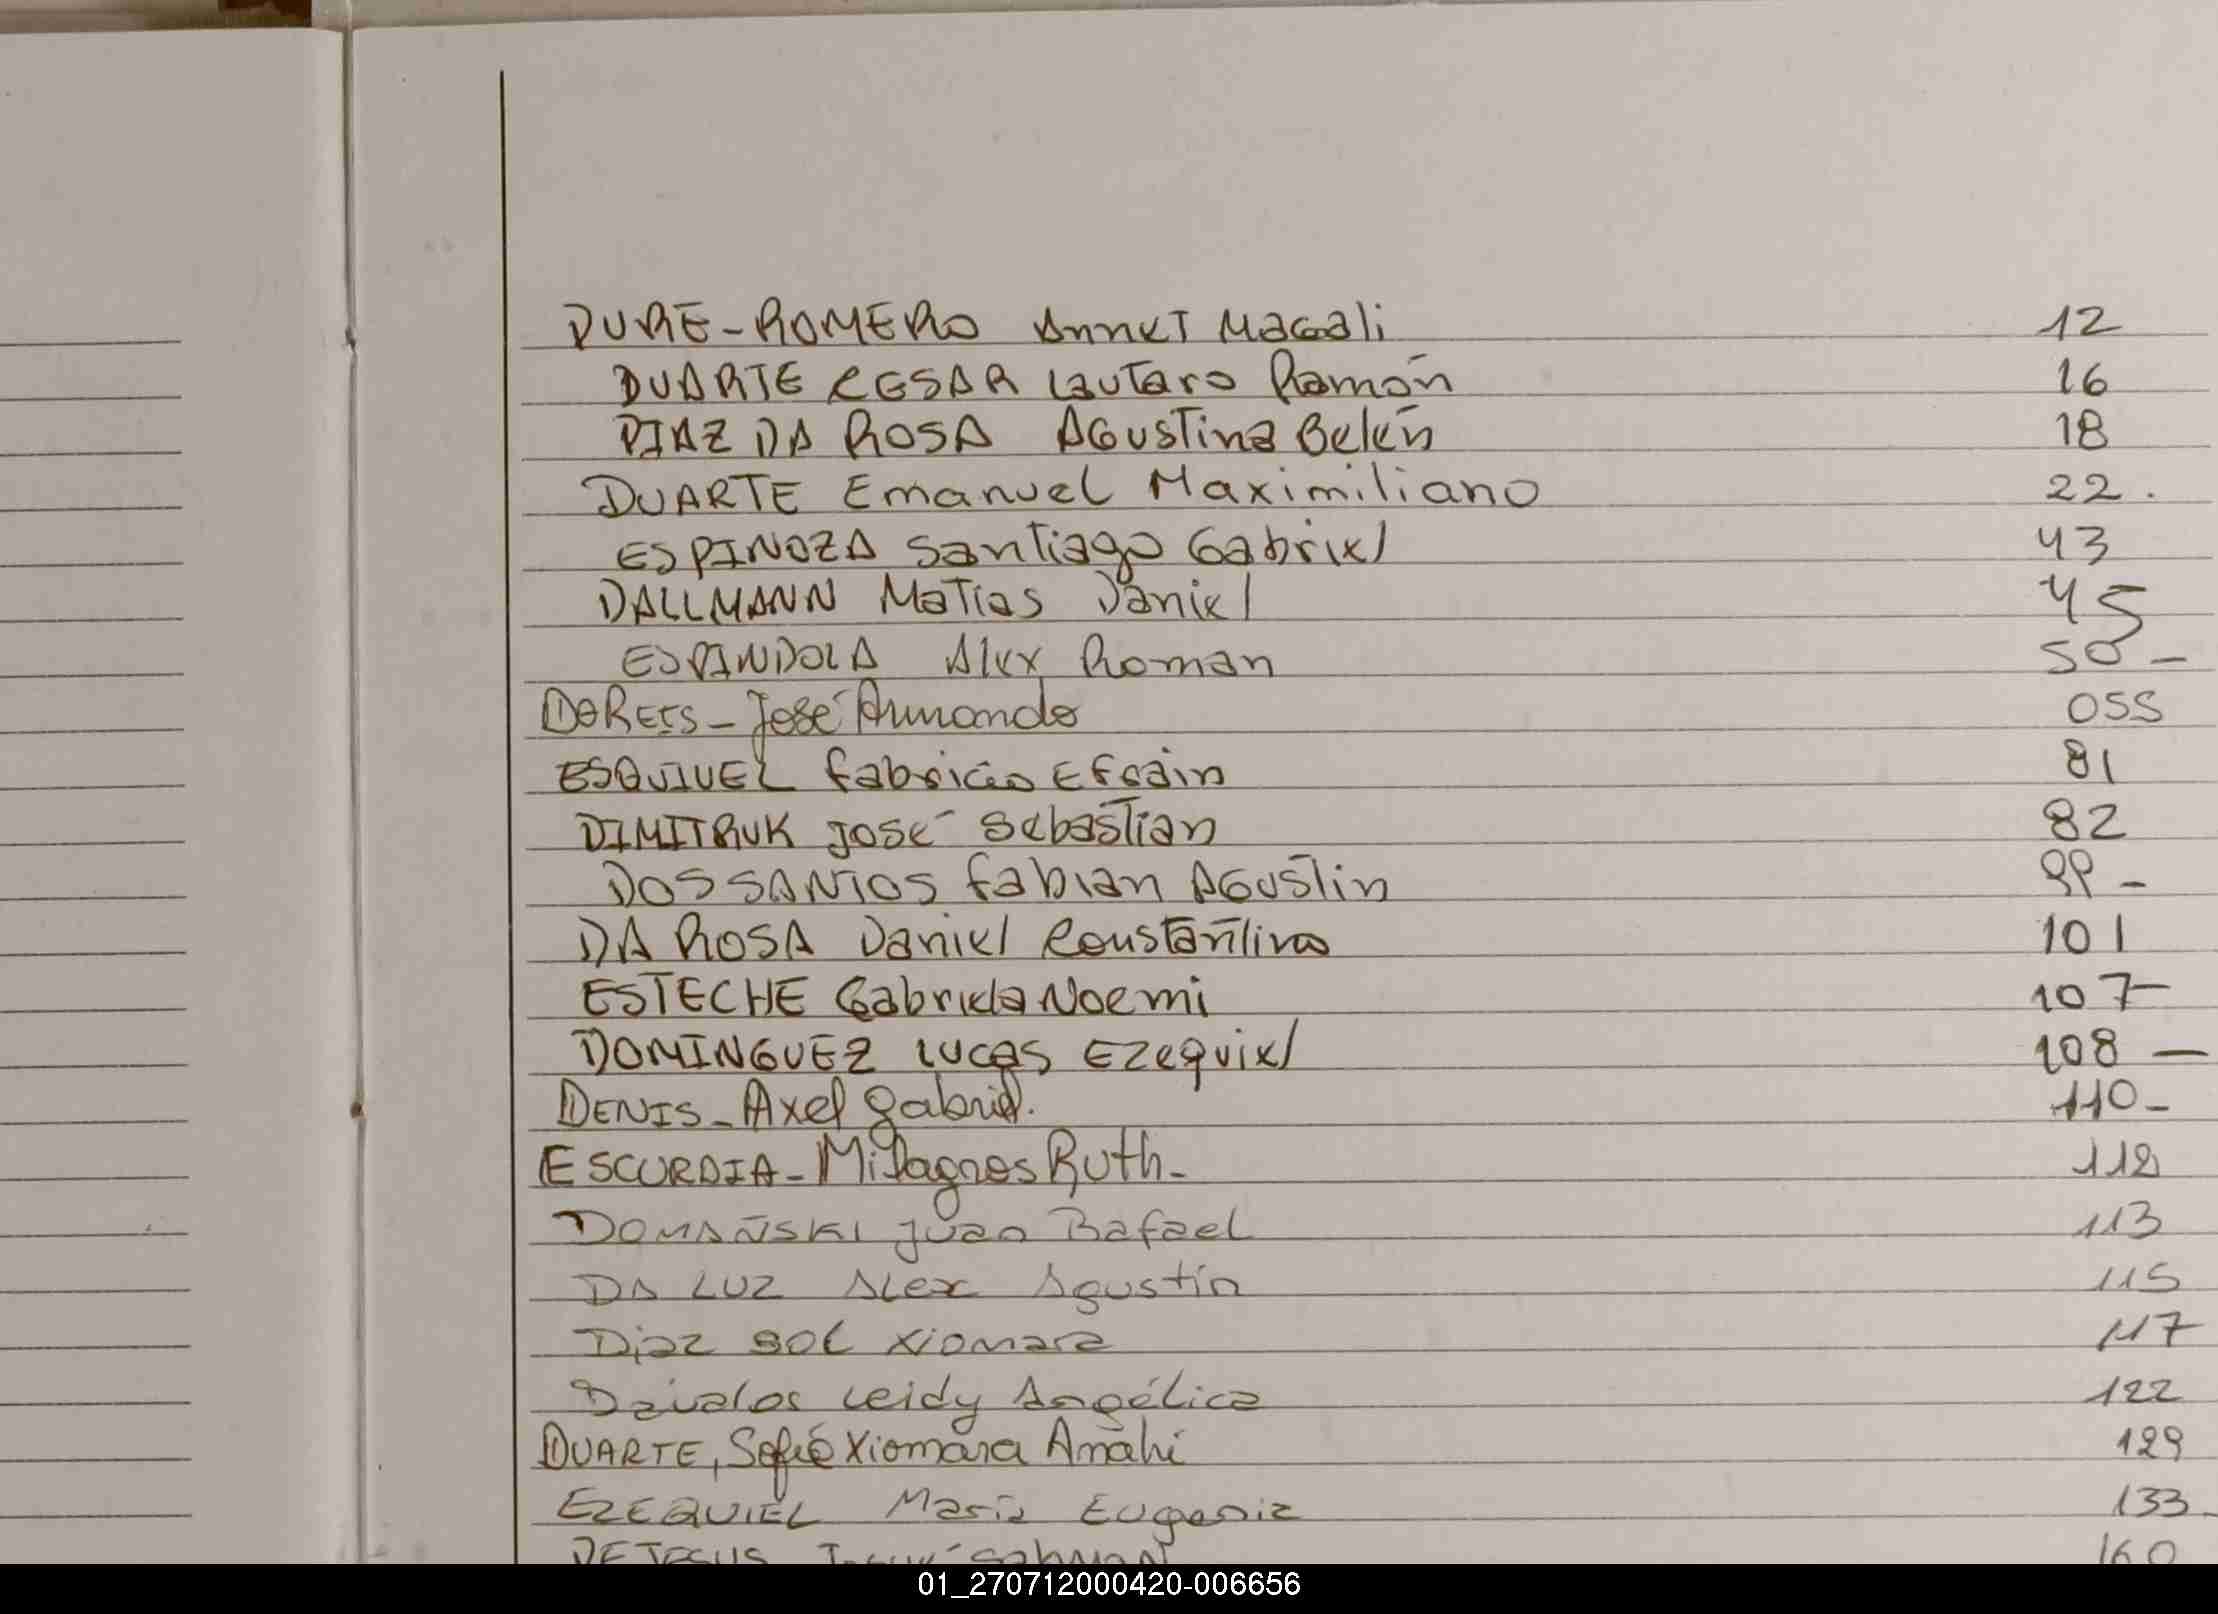 DURE-ROMERO Annet Magali 12
DUARTE CESAR Lautaro Ramón 16
DIAZ DA ROSA Agustina Belén 18
DUARTE Emanuel Maximiliano 22.
ESPINOZA Santiago Gabriel 43
DALLMANN Matias Daniel 45
ESPINDOLA Alex Roman 50-
DOREIS- José Armando 055
ESQUIVEL Fabricio Efrain 81
DIMITRUK José Sebastian 82
DOS SANTOS Fabian Agustin 99-
DA ROSA Daniel Constantino 101
ESTECHE Gabriela Noemi 107-
DOMINGUEZ Lucas Ezequiel 108-
DENIS- Axel Gabriel. 110-
ESCURDIA- Milagros Ruth- 112
DOMAÑSKI Juan Rafael 113
DA LUZ Alex Agustin 115
Diaz Sol Xiomara 117
Dávalos Leidy Angélica 122
DUARTE, Sofía Xiomara Anahi 129
EZEQUIEL María Eugenia 133-
DE JESUS 160
01_270712000420-006656